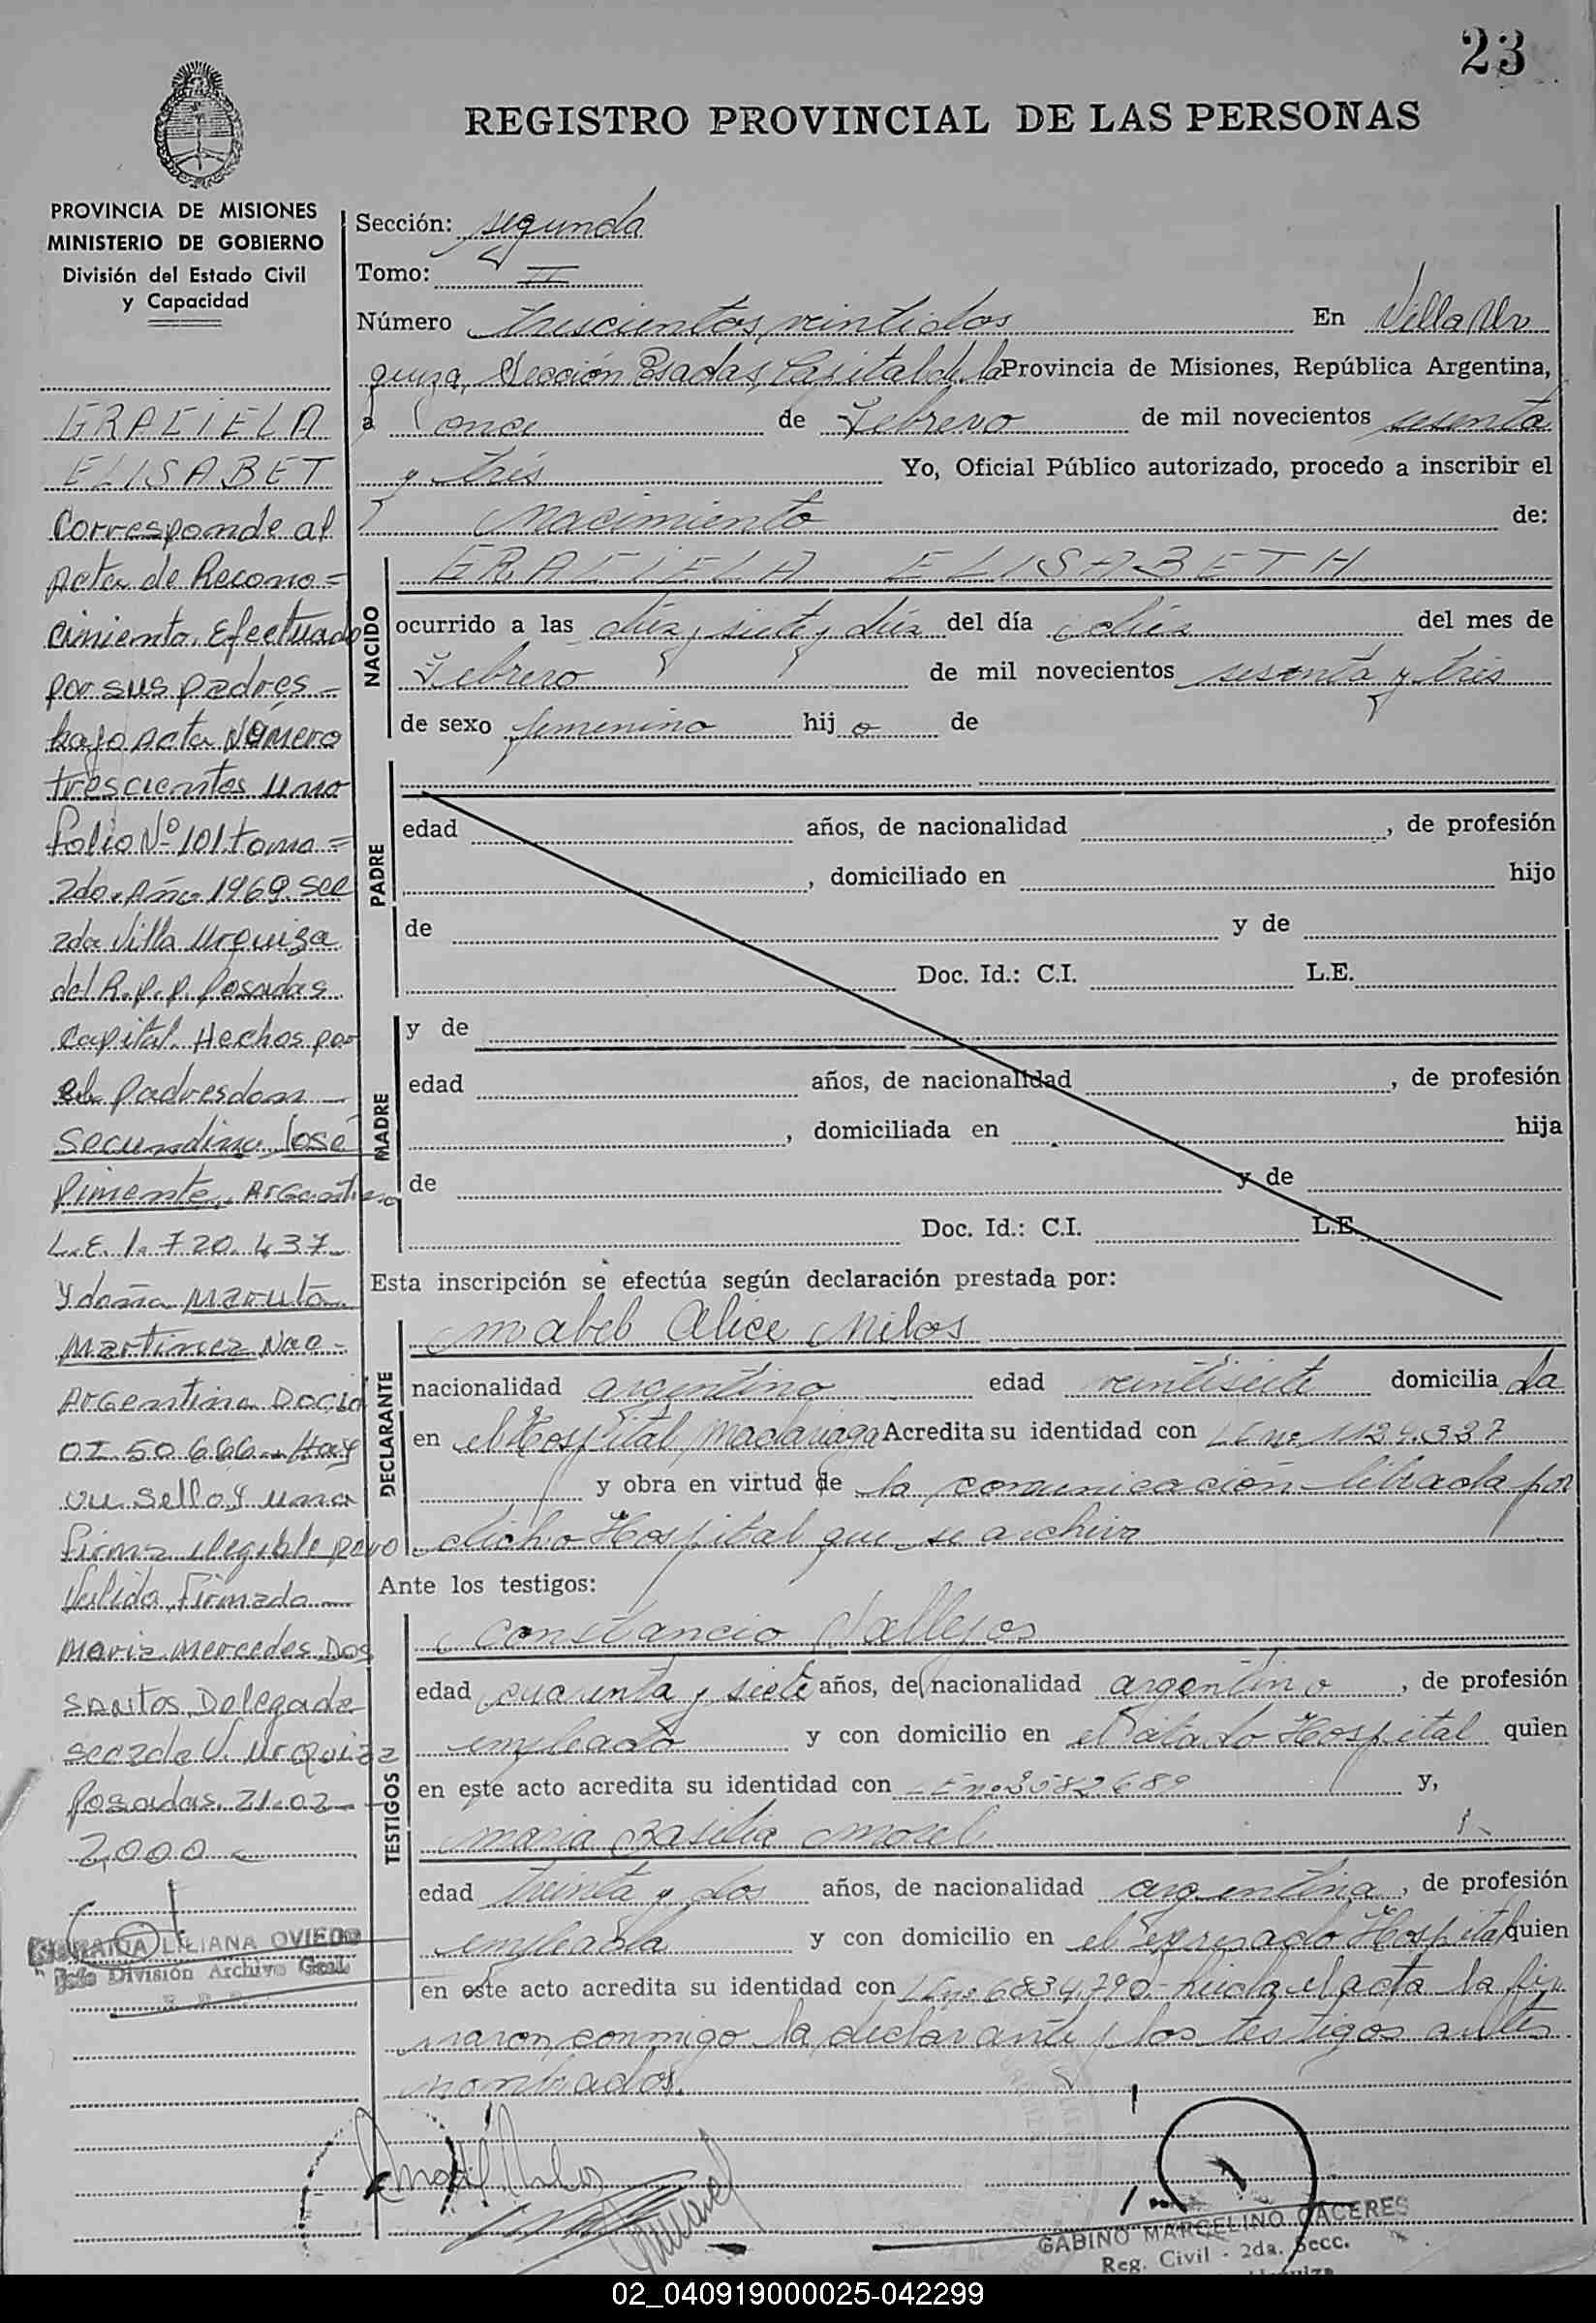 23
REGISTRO PROVINCIAL DE LAS PERSONAS
PROVINCIA DE MISIONES
MINISTERIO DE GOBIERNO
División del Estado Civil
y Capacidad
GRACIELA
ELISABET
Corresponde al
Acta de Recono=
cimiento. Efectuado
por sus padres -
bajo acta Número
trescientos uno
folio Nº 101 tomo =
2do. Año 1969. Sec
2da Villa Urquiza
del R.P.P. Posadas
Capital. Hechos por
el padres don -
Secundino José
Pimente, Argentino
L.E. 1.720.437-
Y doña Maruta
Martinez Nac-
Argentina Doc Id
50.666 - Hay
un sello y una
firma ilegible pero
Valida, Firmado -
Maria Mercedes Dos
Santos, Delegada
Sec 2da V. Urquiza
Posadas, 21-02-
2,000
LILIANA OVIEDO
Jefe División Archivo Gral.
Sección: segunda
Tomo: II
Número trescientos veintidos En Villa Ur
quiza, Sección Posadas, Capital de la Provincia de Misiones, República Argentina,
a once de Febrero de mil novecientos sesenta
y tres Yo, Oficial Público autorizado, procedo a inscribir el
nacimiento de:
NACIDO
GRACIELA ELISABETH
ocurrido a las diez y siete y diez del día diez del mes de
Febrero de mil novecientos sesenta y tres
de sexo femenino hij o de
PADRE
edad años, de nacionalidad , de profesión
, domiciliado en hijo
de y de
Doc. Id.: C.I. L.E.
MADRE
y de
edad años, de nacionalidad , de profesión
, domiciliada en hija
de y de
Doc. Id.: C.I. L.E.
Esta inscripción se efectúa según declaración prestada por:
DECLARANTE
Mabel Alice Milos
nacionalidad argentino edad veintisiete domicilia da
en el Hospital Madariaga Acredita su identidad con LC nº 1124.337
y obra en virtud de la comunicación librada por
dicho Hospital que se archiva
Ante los testigos:
TESTIGOS
Constancio Vallejos
edad cuarenta y siete años, de nacionalidad argentino , de profesión
empleado y con domicilio en el citado Hospital quien
en este acto acredita su identidad con LE nº 3582689 y,
Maria Basilia Morel
edad treinta y dos años, de nacionalidad argentina , de profesión
empleada y con domicilio en el expresado Hospital quien
en este acto acredita su identidad con LC nº 6834.790 - leida el acta la fir
maron conmigo la declarante y los testigos antes
nombrados.
GABINO MARCELINO CACERES
Reg. Civil - 2da. Secc.
02_040919000025-042299